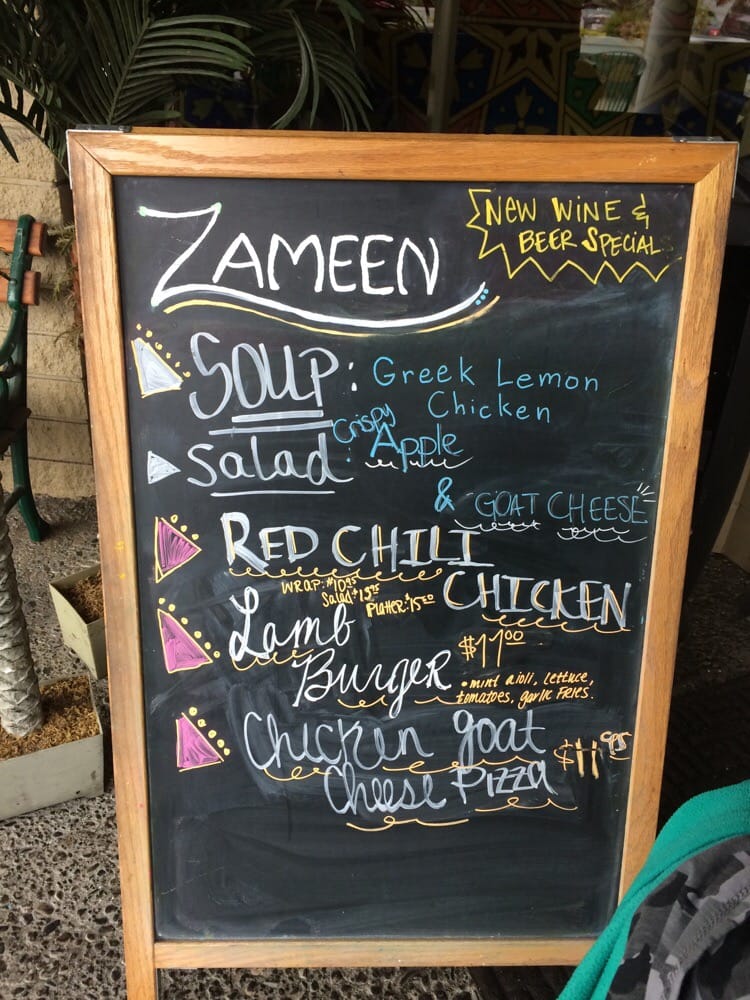 ZAMEEN
NEW WINE &
BEER SPECIALS
SOUP: Greek Lemon
Chicken
Salad: Crispy Apple
& GOAT CHEESE
RED CHILI
CHICKEN
WRAP: $10.95
Salad $13.95
Platter: $15.50
Lamb
Burger $11.00
• mint aioli, lettuce,
tomatoes, garlic FRIES.
Chicken goat
Cheese PIZZA $11.95